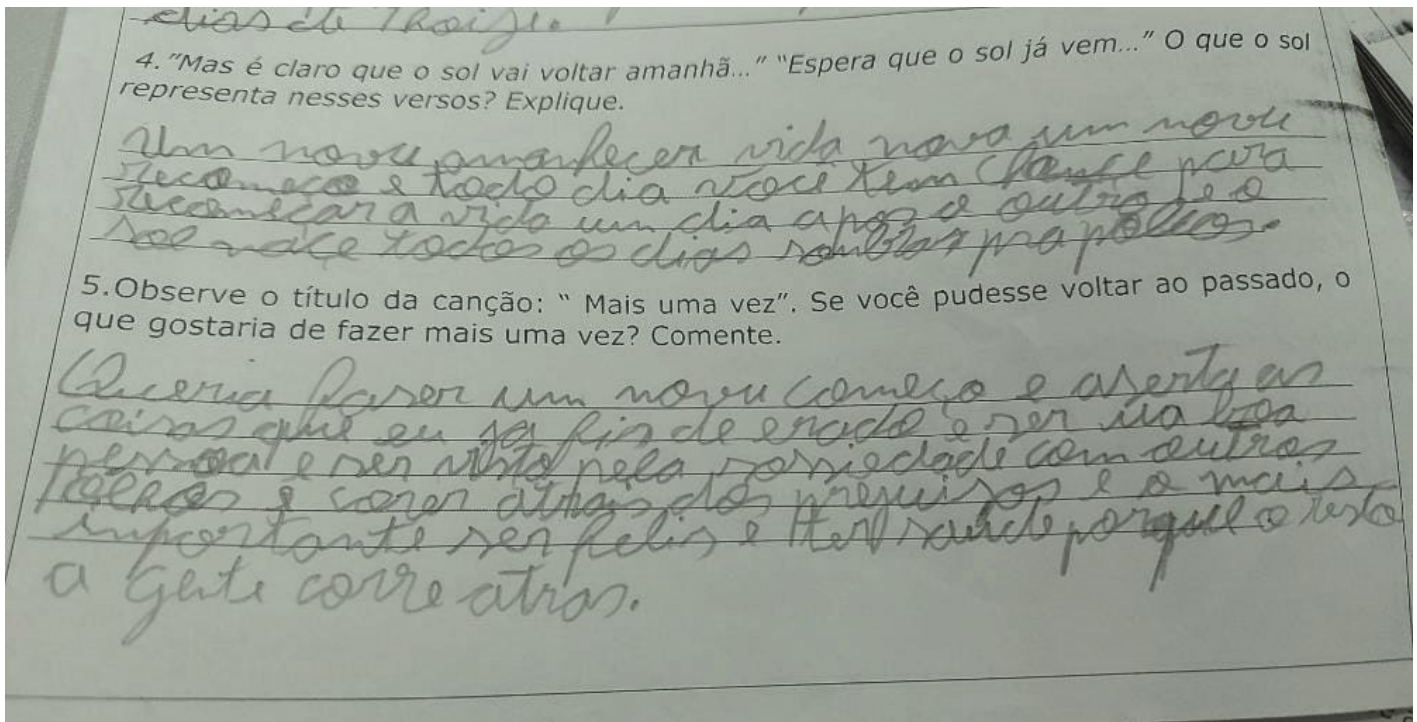 dias de
4."Mas é claro que o sol vai voltar amanhã..." "Espera que o sol já vem..." O que o sol
representa nesses versos? Explique.
Um novu amanhecer vida nova um novu
recomeco e todo dia voce tem chance para
recomecar a vida um dia apos o outro e o
sol nace todos os dias pra
5.Observe o título da canção: " Mais uma vez". Se você pudesse voltar ao passado, o
que gostaria de fazer mais uma vez? Comente.
Queria faser um novu começo e asenta as
coisas que eu ja fis de erado e ser ua boa
pessoa e ser visto pela sosiedade com outros
e corer atrais dos prejuisos e o mais
importante ser felis e ter saude porque o resto
a gente corre atras.